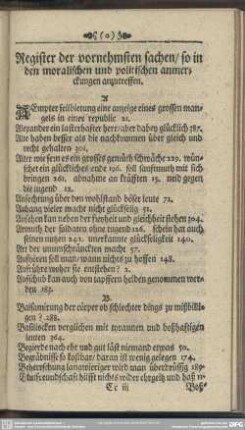 (o)
Register der vornehmsten sachen/ so in
den moralischen und politischen anmer-
ckungen anzutreffen.
A
AEmpter feilbietung eine anzeige eines grossen man-
gels in einer republic 21.
Alexander ein lasterhafter herr/ aber dabey glücklich 387.
Alte haben besser als die nachkommen über gleich und
recht gehalten 301.
Alter wie fern es ein grosses gemüth schwäche 229. wün-
schet ein glückliches ende 106. soll sanfftmuth mit sich
bringen 261. abnahme an kräfften 15. und gegen
die jugend 12.
Anfechtung über den wohlstand böser leute 72.
Anhang vieler macht nicht glückselig 51.
Ansehen kan neben der freyheit und gleichheit stehen 304.
Armuth der soldaten ohne tugend 126. schein hat auch
seinen nutzen 142. unerkannte glückseligkeit 140.
Art der unumschränckten macht 57.
Aufhören soll man/ wann nichts zu hoffen 148.
Aufruhre woher sie entstehen ? 2.
Aufschub kan auch von tapffern helden genommen wer-
den 185.
B.
Balsamirung der cörper ob schlechter dings zu mißbilli-
gen ? 288.
Basiliscken verglichen mit tyrannen und boßhafftigen
leuten 364.
Begierde nach ehr und gut läst niemand etwas 50.
Begräbnisse so kostbar/ daran ist wenig gelegen 174.
Beherrschung langwieriger wird man überdrüssig 189.
Blutfreundschafft hilfft nichts wider ehrgeitz und haß 11.
Cc iij
Boß-